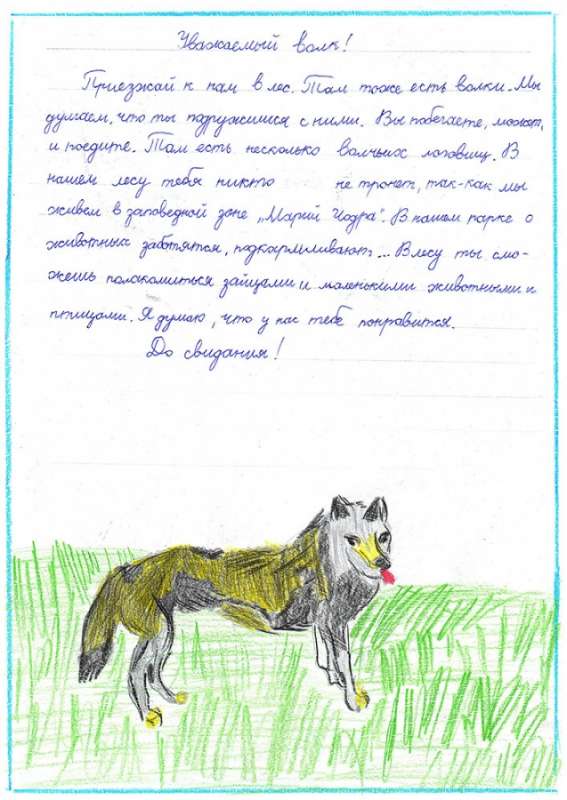 Уважаемый волк!
Приезжай к нам в лес. Там тоже есть волки. Мы
думаем, что ты подружишся с ними. Вы побегаете, может,
и поедите. Там есть несколько волчьих логовищ. В
нашем лесу тебя никто не тронет, так-как мы
живём в заповедной зоне „Марий Чодра". В нашем парке о
животных заботятся, подкармливают... В лесу ты смо-
жешь полакомиться зайцами и маленькими животными и
птицами. Я думаю, что у нас тебе понравится.
До свидания!